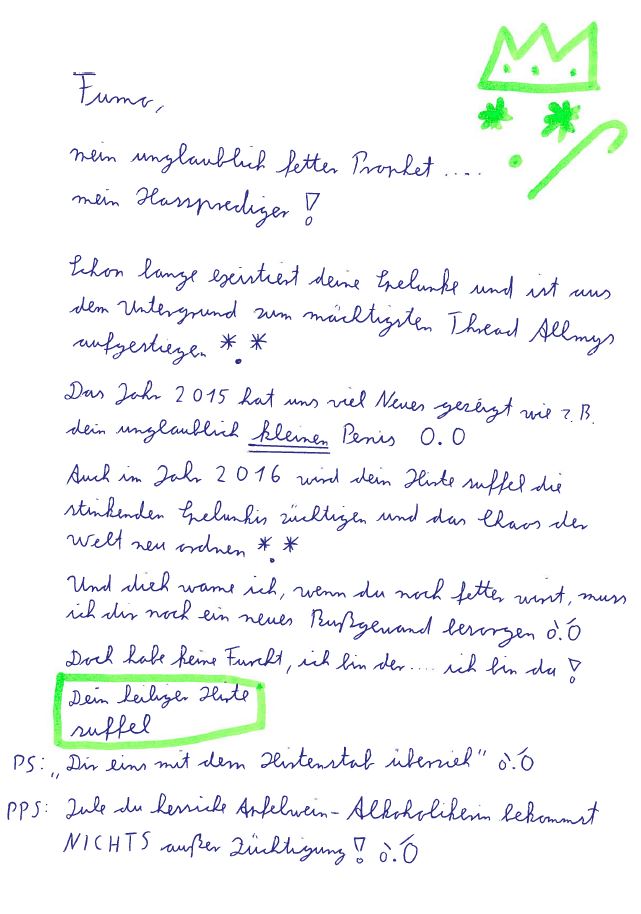 Fumo,
mein unglaublich fetter Prophet....
mein Hassprediger!
Schon lange existiert deine Spelunke und ist aus
dem Untergrund zum mächtigsten Thread Allmys
aufgestiegen *.*
Das Jahr 2015 hat uns viel Neues gezeigt wie z.B.
dein unglaublich kleinen Penis O.O
Auch im Jahr 2016 wird dein Hirte suffel die
stinkenden Spelunkis züchtigen und das Chaos der
Welt neu ordnen *.*
Und dich warne ich, wenn du noch fetter wirst, muss
ich dir noch ein neues Bußgewand besorgen ò.Ó
Doch habe keine Furcht, ich bin der.... ich bin da!
Dein heiliger Hirte
suffel
PS: „Dir eins mit dem Hirtenstab überzieh" ò.Ó
PPS: Jule du hessiche Apfelwein-Alkoholikerin bekommst
NICHTS außer Züchtigung! ò.Ó